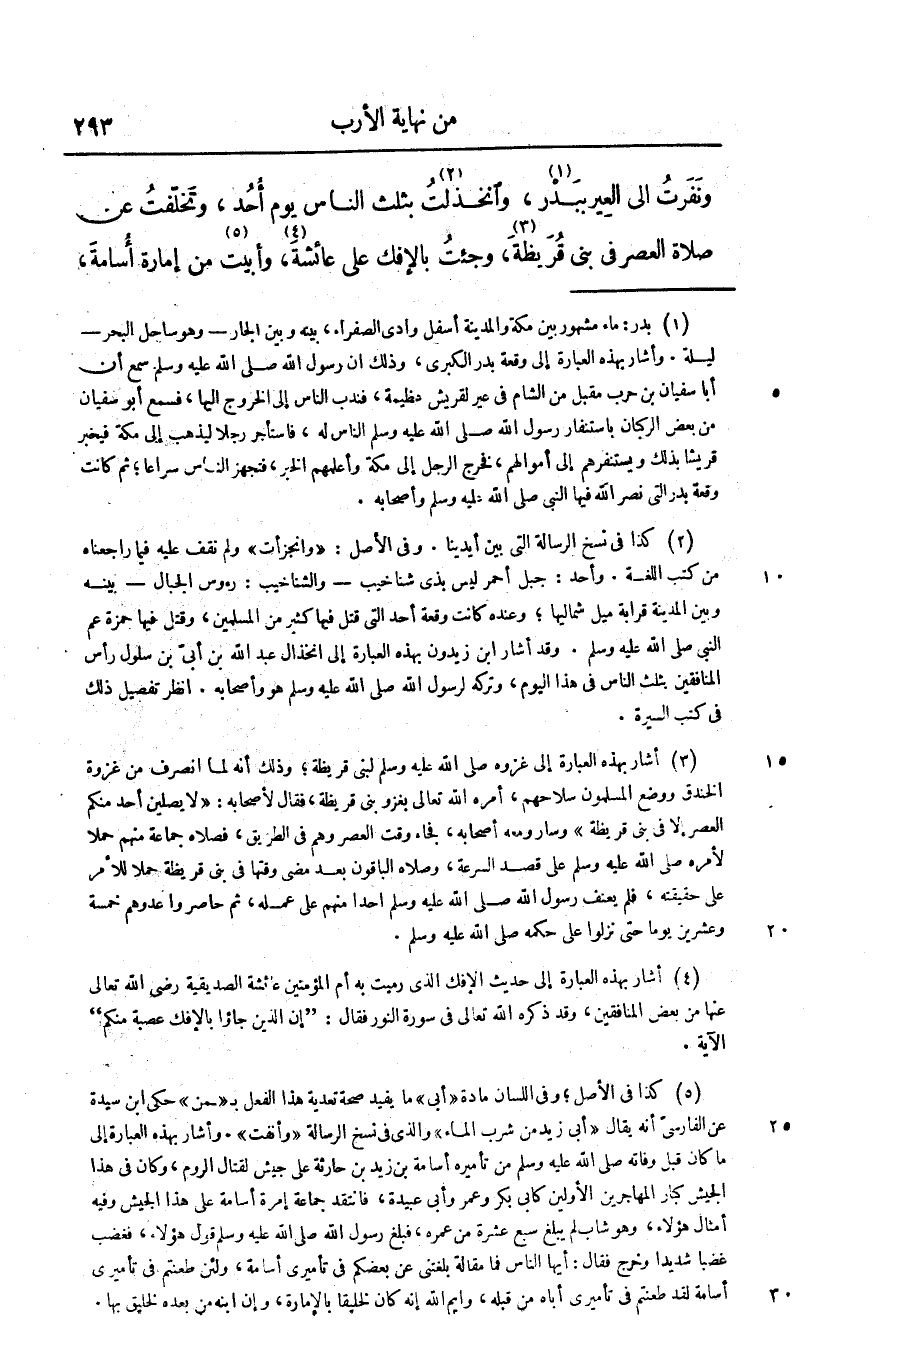 من نهاية الأرب ٢٩٣
ونَفَرتُ الى العِير ببَدْر(١) ، وٱنخذلتُ(٢) بثلث الناس يوم أُحُد ، وتَخلّفتُ عن
صلاة العصر فى بنى قُرَيظة(٣)، وجئتُ بالإفك على عائشةَ(٤)، وأبيت(٥) من إمارة أُسامةَ،
(١) بدر: ماء مشهور بين مكة والمدينة أسفل وادى الصفراء، بينه وبين الجار — وهو ساحل البحر —
ليلة . وأشار بهذه العبارة إلى وقعة بدر الكبرى ، وذلك ان رسول الله صلى الله عليه وسلم سمع أن
أبا سفيان بن حرب مقبل من الشام فى عير لقريش عظيمة ، فندب الناس إلى الخروج اليها ، فسمع أبو سفيان ٥
من بعض الركبان باستنفار رسول الله صلى الله عليه وسلم الناس له ، فاستأجر رجلا ليذهب إلى مكة فيخبر
قريشا بذلك ويستنفرهم إلى أموالهم ، فخرج الرجل إلى مكة وأعلمهم الخبر ، فتجهز الناس سراعا ؛ ثم كانت
وقعة بدر التى نصر الله فيها النبى صلى الله عليه وسلم وأصحابه .
(٢) كذا فى نسخ الرسالة التى بين أيدينا . وفى الأصل : «وانجزأت» ولم نقف عليه فيما راجعناه
من كتب اللغة . وأحد : جبل أحمر ليس بذى شناخيب — والشناخيب : رءوس الجبال — بينه ١٠
وبين المدينة قرابة ميل شماليها ؛ وعنده كانت وقعة أحد التى قتل فيها كثير من المسلمين ، وقتل فيها حمزة عم
النبى صلى الله عليه وسلم . وقد أشار ابن زيدون بهذه العبارة إلى انخذال عبد الله بن أبىّ بن سلول رأس
المنافقين بثلث الناس فى هذا اليوم ، وتركه لرسول الله صلى الله عليه وسلم هو وأصحابه . انظر تفصيل ذلك
فى كتب السيرة .
(٣) أشار بهذه العبارة إلى غزوه صلى الله عليه وسلم لبنى قريظة ؛ وذلك أنه لما انصرف من غزوة ١٥
الخندق ووضع المسلمون سلاحهم ، أمره الله تعالى بغزو بنى قريظة ، فقال لأصحابه : «لا يصلين أحد منكم
العصر إلا فى بنى قريظة » وسار ومعه أصحابه ، فجاء وقت العصر وهم فى الطريق ، فصلاه جماعة منهم حملا
لأمره صلى الله عليه وسلم على قصد السرعة ، وصلاه الباقون بعد مضى وقتها فى بنى قريظة حملا للأمر
على حقيقته ، فلم يعنف رسول الله صلى الله عليه وسلم احدا منهم على عمله، ثم حاصروا عدوهم خمسة
وعشرين يوما حتى نزلوا على حكمه صلى الله عليه وسلم . ٢٠
(٤) أشار بهذه العبارة إلى حديث الإفك الذى رميت به أم المؤمنين عائشة الصديقية رضى الله تعالى
عنها من بعض المنافقين ، وقد ذكره الله تعالى فى سورة النور فقال : ”إن الذين جاؤا بالإفك عصبة منكم“
الآية .
(٥) كذا فى الأصل ؛ وفى اللسان مادة «أبى» ما يفيد صحة تعدية هذا الفعل بـ«ـمن» حكى ابن سيدة
عن الفارسىّ أنه يقال «أبى زيد من شرب الماء» والذى فى نسخ الرسالة «وأنفت» . وأشار بهذه العبارة إلى ٢٥
ما كان قبل وفاته صلى الله عليه وسلم من تأميره أسامة بن زيد بن حارثة على جيش لقتال الروم ، وكان فى هذا
الجيش كبار المهاجرين الأولين كابى بكر وعمر وأبى عبيدة ، فانتقد جماعة إمرة أسامة على هذا الجيش وفيه
أمثال هؤلاء ، وهو شاب لم يبلغ سبع عشرة من عمره ، فبلغ رسول الله صلى الله عليه وسلم قول هؤلاء ، فغضب
غضبا شديدا وخرج فقال : أيها الناس فما مقالة بلغتنى عن بعضكم فى تأميرى أسامة ، ولئن طعنتم فى تأميرى
أسامة لقد طعنتم فى تأميرى أباه من قبله ، وايم الله إنه كان لخليقا بالإمارة ، وإن ابنه من بعده لخليق بها . ٣٠